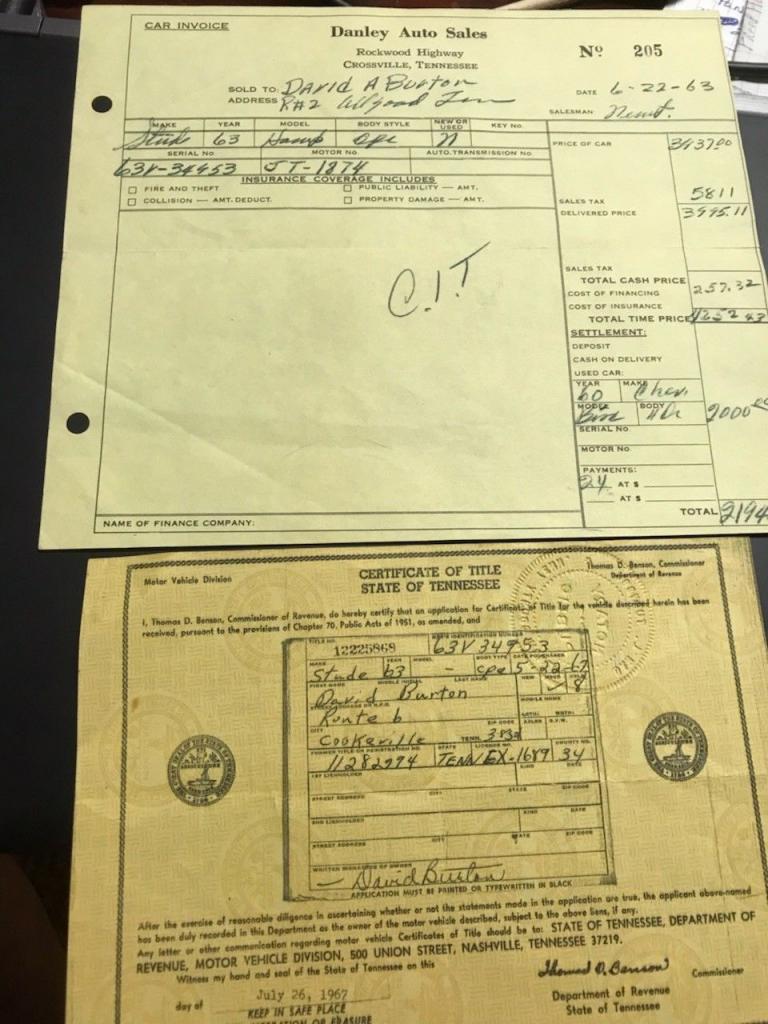 CAR INVOICE
Danley Auto Sales
Rockwood Highway
CROSSVILLE, TENNESSEE
No 205
SOLD TO: David A Burton
ADDRESS R#2
DATE 6-22-63
SALESMAN
MAKE YEAR MODEL BODY STYLE NEW OR USED KEY No.
Stude 63 Cpe N
SERIAL No. MOTOR No. AUTO. TRANSMISSION No.
63V-34953 JT-1874
INSURANCE COVERAGE INCLUDES
□ FIRE AND THEFT □ PUBLIC LIABILITY — AMT.
□ COLLISION — AMT. DEDUCT. □ PROPERTY DAMAGE — AMT.
C.I.T
PRICE OF CAR
SALES TAX 5811
DELIVERED PRICE 3995.11
SALES TAX
TOTAL CASH PRICE
COST OF FINANCING 257.32
COST OF INSURANCE
TOTAL TIME PRICE 4252.43
SETTLEMENT:
DEPOSIT
CASH ON DELIVERY
USED CAR:
YEAR MAKE
60 Chev.
MODEL BODY
4Dr 2000
SERIAL No.
MOTOR No.
PAYMENTS:
24 AT $
AT $
TOTAL 2194
NAME OF FINANCE COMPANY:
Motor Vehicle Division
CERTIFICATE OF TITLE
STATE OF TENNESSEE
Thomas D. Benson, Commissioner
Department of Revenue
I, Thomas D. Benson, Commissioner of Revenue, do hereby certify that an application for Certificate of Title for the vehicle described herein has been
received, pursuant to the provisions of Chapter 70, Public Acts of 1951, as amended, and
TITLE NO. IDENTIFICATION NUMBER
12225868 63V34953
MAKE YEAR MODEL BODY TYPE DATE PURCHASED
Stude 63 - cpe 5-22-67
FIRST NAME MIDDLE INITIAL LAST NAME NEW USED
David Burton 8
Route 6
CITY ZIP CODE
Cookeville TENN.
FORMER TITLE OR REGISTRATION NO. STATE LICENSE NO. COUNTY NO.
11282994 TENN EX-1689 34
1ST LIENHOLDER KIND DATE
STREET ADDRESS CITY STATE ZIP CODE
2ND LIENHOLDER KIND DATE
STREET ADDRESS CITY STATE ZIP CODE
WRITTEN SIGNATURE OF OWNER
David Burton
APPLICATION MUST BE PRINTED OR TYPEWRITTEN IN BLACK
After the exercise of reasonable diligence in ascertaining whether or not the statements made in the application are true, the applicant above-named
has been duly recorded in this Department as the owner of the motor vehicle described, subject to the above liens, if any.
Any letter or other communication regarding motor vehicle Certificates of Title should be to: STATE OF TENNESSEE, DEPARTMENT OF
REVENUE, MOTOR VEHICLE DIVISION, 500 UNION STREET, NASHVILLE, TENNESSEE 37219.
Witness my hand and seal of the State of Tennessee on this
day of July 26, 1967
Thomas D. Benson Commissioner
Department of Revenue
State of Tennessee
KEEP IN SAFE PLACE
OR ERASURE